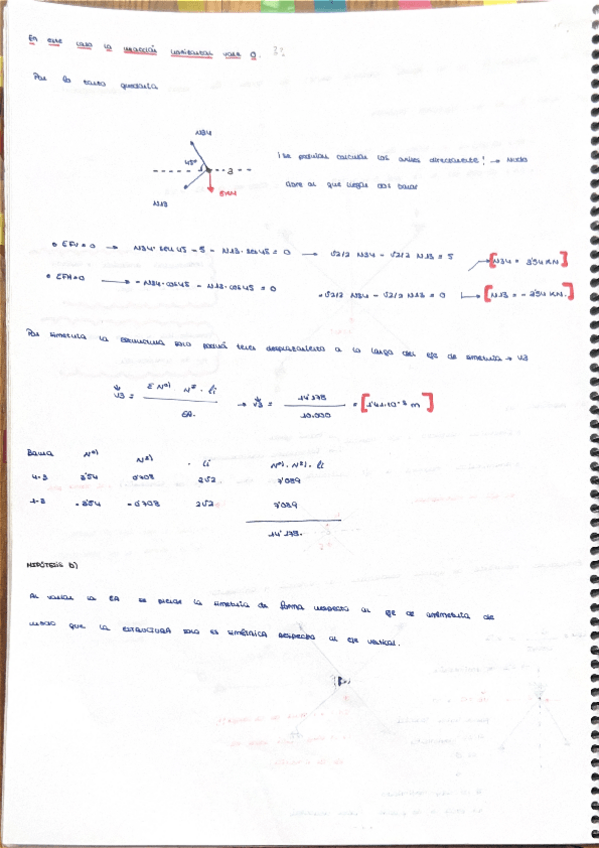 En este caso la reacción horizontal vale 0.
Por lo tanto quedaría
N34
45º
3
5KN
N13
¡se podrían calcular los axiles directamente! → Nudo
libre al que llegan dos barras
• EFV=0 → N34·sen45 - 5 - N13·sen45 = 0 → √2/2 N34 - √2/2 N13 = 5 [N34 = 3'54 KN]
• EFH=0 → -N34·cos45 - N13·cos45 = 0 -√2/2 N34 - √2/2 N13 = 0 [N13 = -3'54 KN.]
Por simetría la estructura solo podrá tener desplazamiento a lo largo del eje de simetría → V3
V3 = Σ Nᵃ⁾ Nᴵᴵ · li / EA. → V3 = 14'178 / 10.000 = [1'41·10⁻³ m]
Barra Nᵃ⁾ Nᴵ⁾ · li Nᵃ⁾·Nᴵ⁾·li
4-3 3'54 0'708 2√2. 7'089
1-3 -3'54 -0'708 2√2 7'089
14'178.
HIPÓTESIS b)
Al variar la EA se pierde la simetría de forma respecto al eje de antimetría de
modo que la ESTRUCTURA solo es SIMÉTRICA RESPECTO al eje vertical.